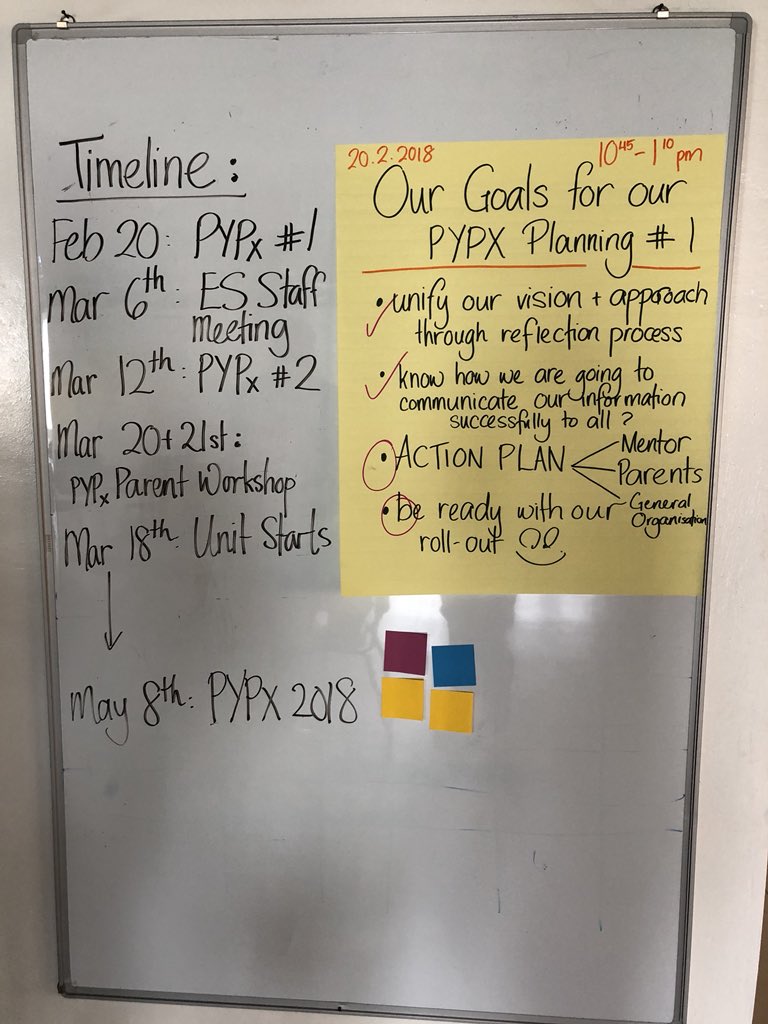 Timeline:
Feb 20: PYPx #1
Mar 6th: ES Staff
meeting
Mar 12th: PYPx #2
Mar 20+21st:
PYPx Parent Workshop
Mar 18th: Unit Starts
May 8th: PYPX 2018
20.2.2018 10⁴⁵-1¹⁰ pm
Our Goals for our
PYPX Planning #1
• unify our vision + approach
through reflection process
• know how we are going to
communicate our information
successfully to all?
• ACTION PLAN
Mentor
Parents
General
Organisation
• be ready with our
roll-out